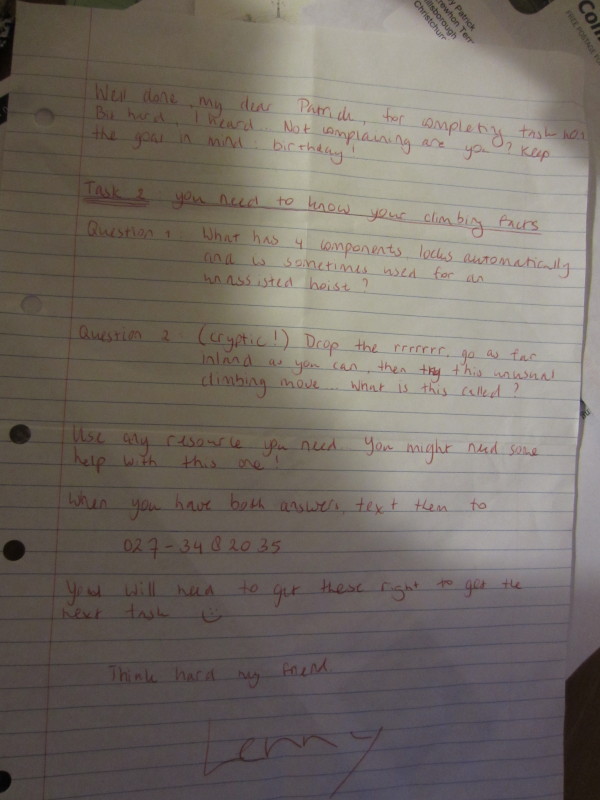 y Patrick
rewhon Terr
illsborough
Christchur
FREE POSTAGE
Well done, my dear Patrick, for completing task no1
Bu hard, I heard... Not complaining are you? Keep
the goal in mind: birthday!
Task 2 you need to know your climbing facts
Question 1 What has 4 components, locks automatically
and is sometimes used for an
unassisted hoist?
Question 2 (cryptic!) Drop the rrrrrrr, go as far
inland as you can, then try this unusual
climbing move... What is this called?
Use any resource you need. You might need some
help with this one!
When you have both answers, text them to
027-34 2035
You will need to get these right to get the
next task
Think hard my friend
Lenny